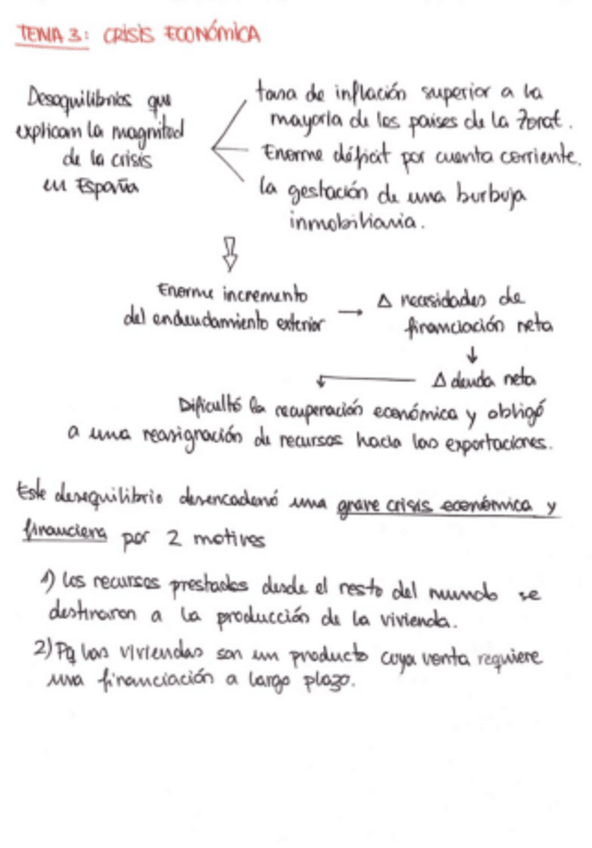 TEMA 3: CRISIS ECONÓMICA
Desequilibrios que
explican la magnitud
de la crisis
en España
tasa de inflación superior a la
mayoría de los países de la
Enorme déficit por cuenta corriente.
la gestación de una burbuja
inmobiliaria.
Enorme incremento
del endeudamiento exterior
→ Δ necesidades de
financiación neta
Δ deuda neta
Dificultó la recuperación económica y obligó
a una reasignación de recursos hacia las exportaciones.
Este desequilibrio desencadenó una grave crisis económica y
financiera por 2 motivos
1) los recursos prestados desde el resto del mundo se
destinaron a la producción de la vivienda.
2) Pq las viviendas son un producto cuya venta requiere
una financiación a largo plazo.